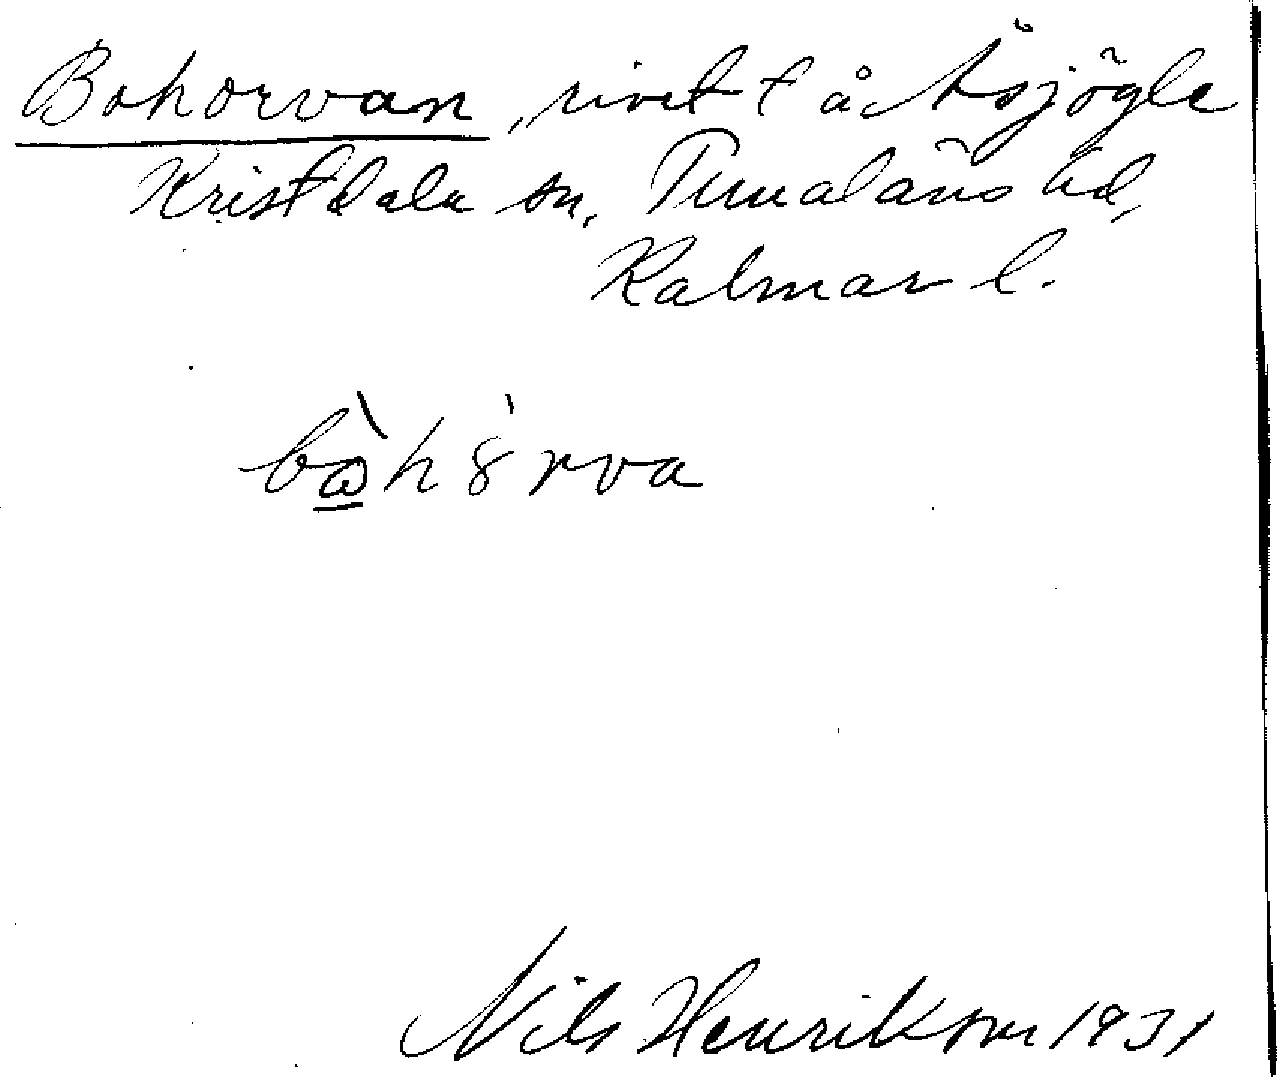 Bohorvan, rivet t å Åsjögle
Kristdala sn, Tunaläns hd,
Kalmar l.
bò̱hȣ̀rva
Nils Henrikson 1931